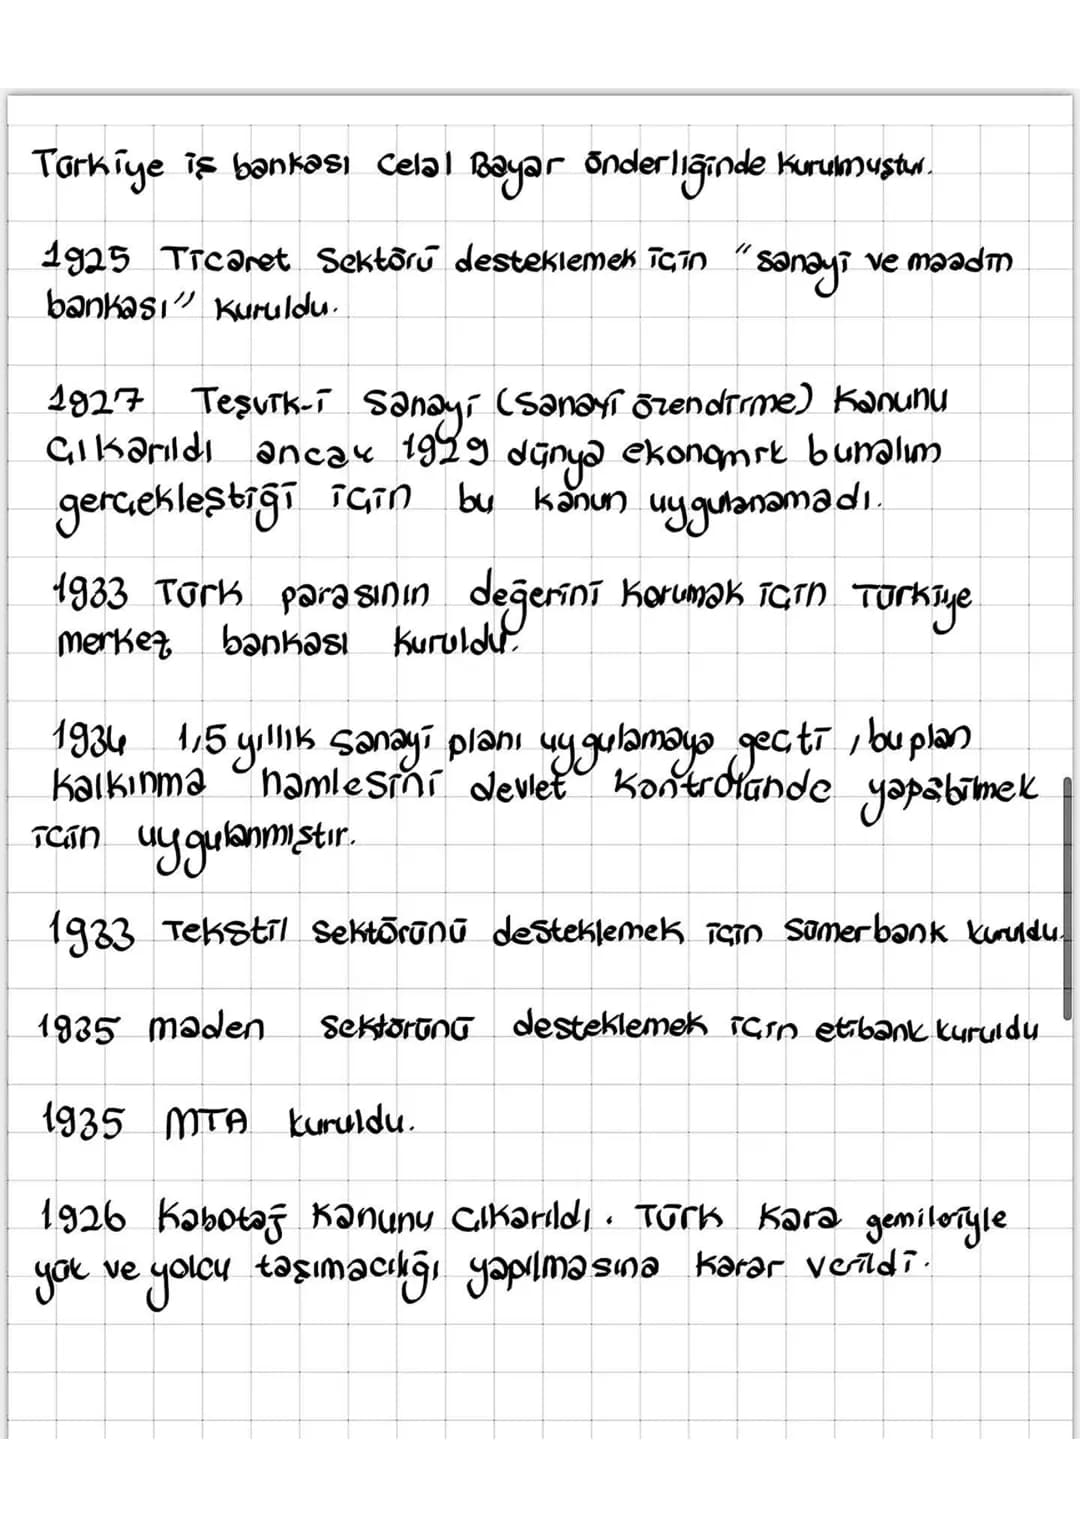 Türkiye iş bankası Celal Bayar önderliğinde kurulmuştur.
1925 Ticaret Sektörü desteklemek için "sanayi ve maadin
bankası" kuruldu.
1927 Teşvik-i Sanayi (Sanayi özendirme) Kanunu
çıkarıldı ancak 1929 dünya ekonomik bunalım
gerçekleştiği için bu kanun uygulanamadı.
1933 Türk parasının değerini korumak için Türkiye
merkez bankası kuruldu.
1934 1,5 yıllık sanayi planı uygulamaya geçti, bu plan
kalkınma hamlesini devlet kontrolünde yapabilmek
için uygulanmıştır.
1933 Tekstil sektörünü desteklemek için Sümerbank kuruldu.
1935 maden sektörünü desteklemek için etibank kuruldu
1935 MTA kuruldu.
1926 Kabotaj Kanunu çıkarıldı. Türk kara gemileriyle
yük ve yolcu taşımacılığı yapılmasına karar verildi.